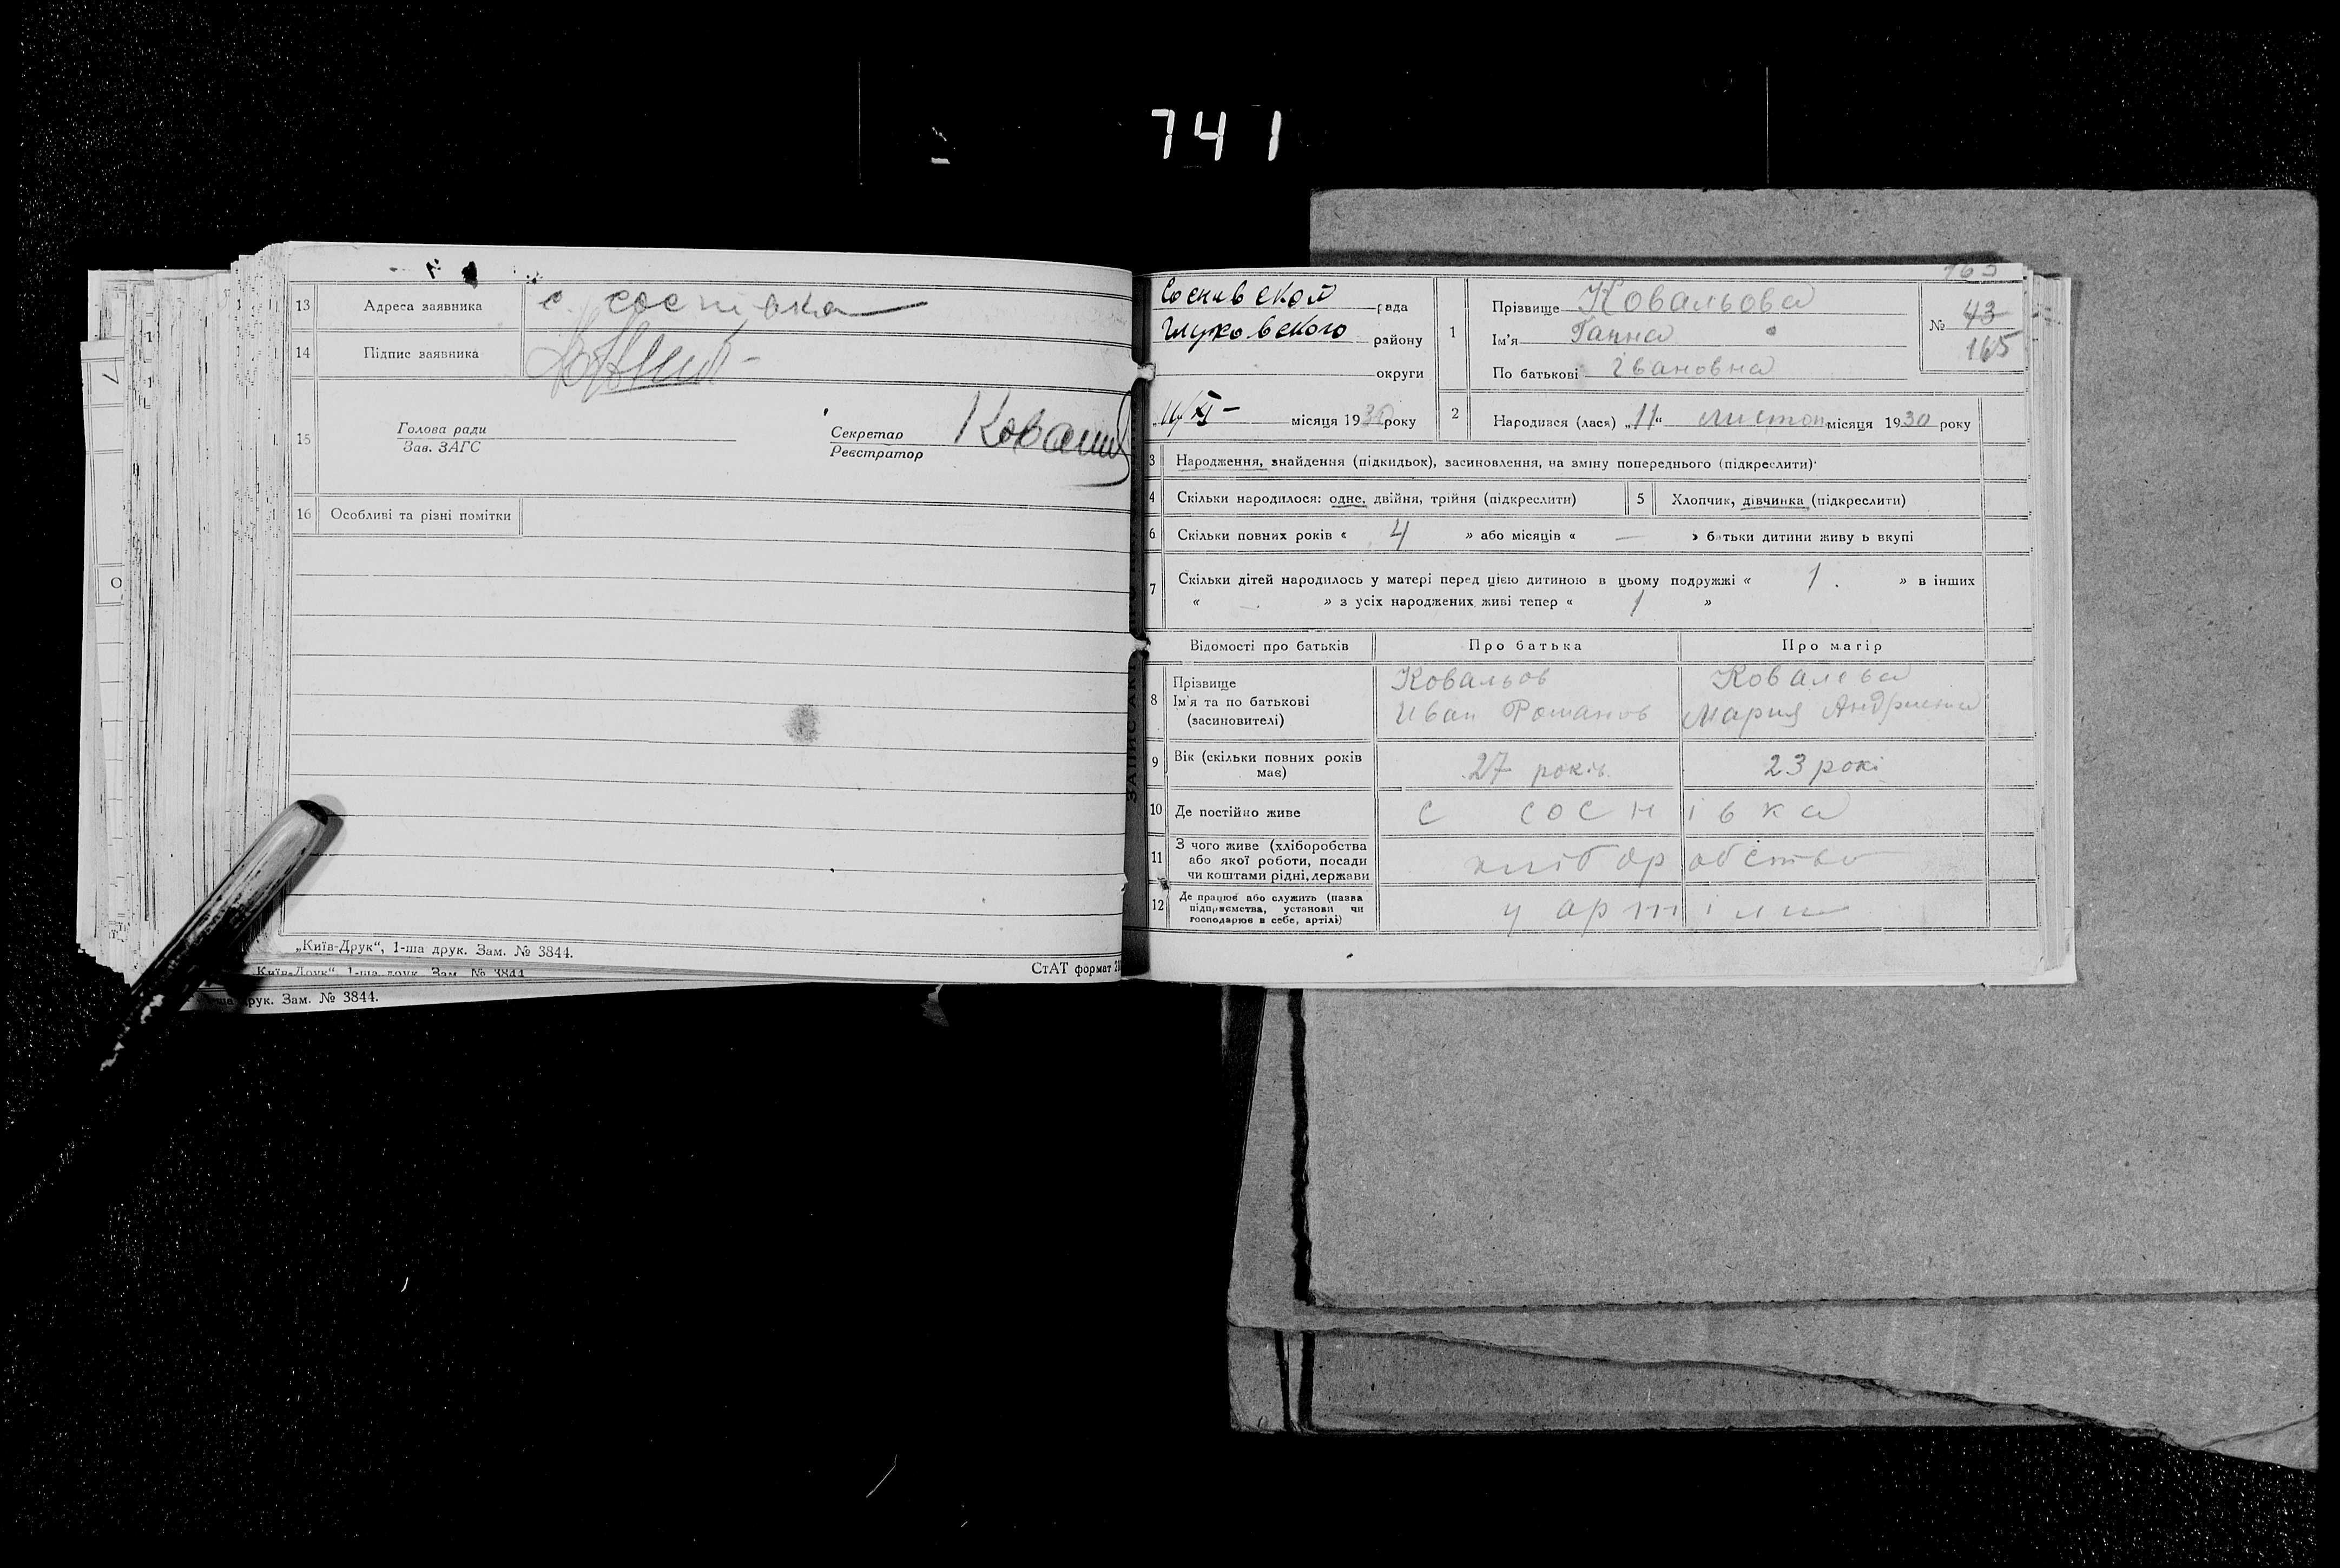 741
13 Адреса заявника с. соснівка
14 Підпис заявника
15 Голова ради
Зав. ЗАГС
Секретар
Реєстратор
16 Особливі та різні помітки
„Київ-Друк“, 1-ша друк. Зам. № 3844.
Київ-Друк“, 1-ша друк. Зам. № 3844
друк. Зам. № 3844.
СтАТ формат
ЗАПИС АК
Соснивской рада
Глуховского району
округи
11/XI- місяця 1930 року
1 Прізвище Ковальова
Ім'я Ганна
По батькові Івановна
№ 43
165
2 Народився (лася) „11“ листоп місяця 1930 року
3 Народження, знайдення (підкидьок), засиновлення, на зміну попереднього (підкреслити)
4 Скільки народилося: одне, двійня, трійня (підкреслити) 5 Хлопчик, дівчинка (підкреслити)
6 Скільки повних років « 4 » або місяців « — » батьки дитини живу ь вкупі
7 Скільки дітей народилось у матері перед цією дитиною в цьому подружжі « 1. » в інших
« — » з усіх народжених живі тепер « 1 »
Відомості про батьків Про батька Про матір
8 Прізвище Ковальов Ковалева
Ім'я та по батькові Иван Романов Мария
(засиновителі)
9 Вік (скільки повних років має) 27 років 23 рокі
10 Де постійно живе с соснівка
11 З чого живе (хліборобства
або якої роботи, посади
чи коштами рідні, держави
хліборобство
12 Де працює або служить (назва
підприємства, установи чи
господарює в себе, артілі)
у артіли